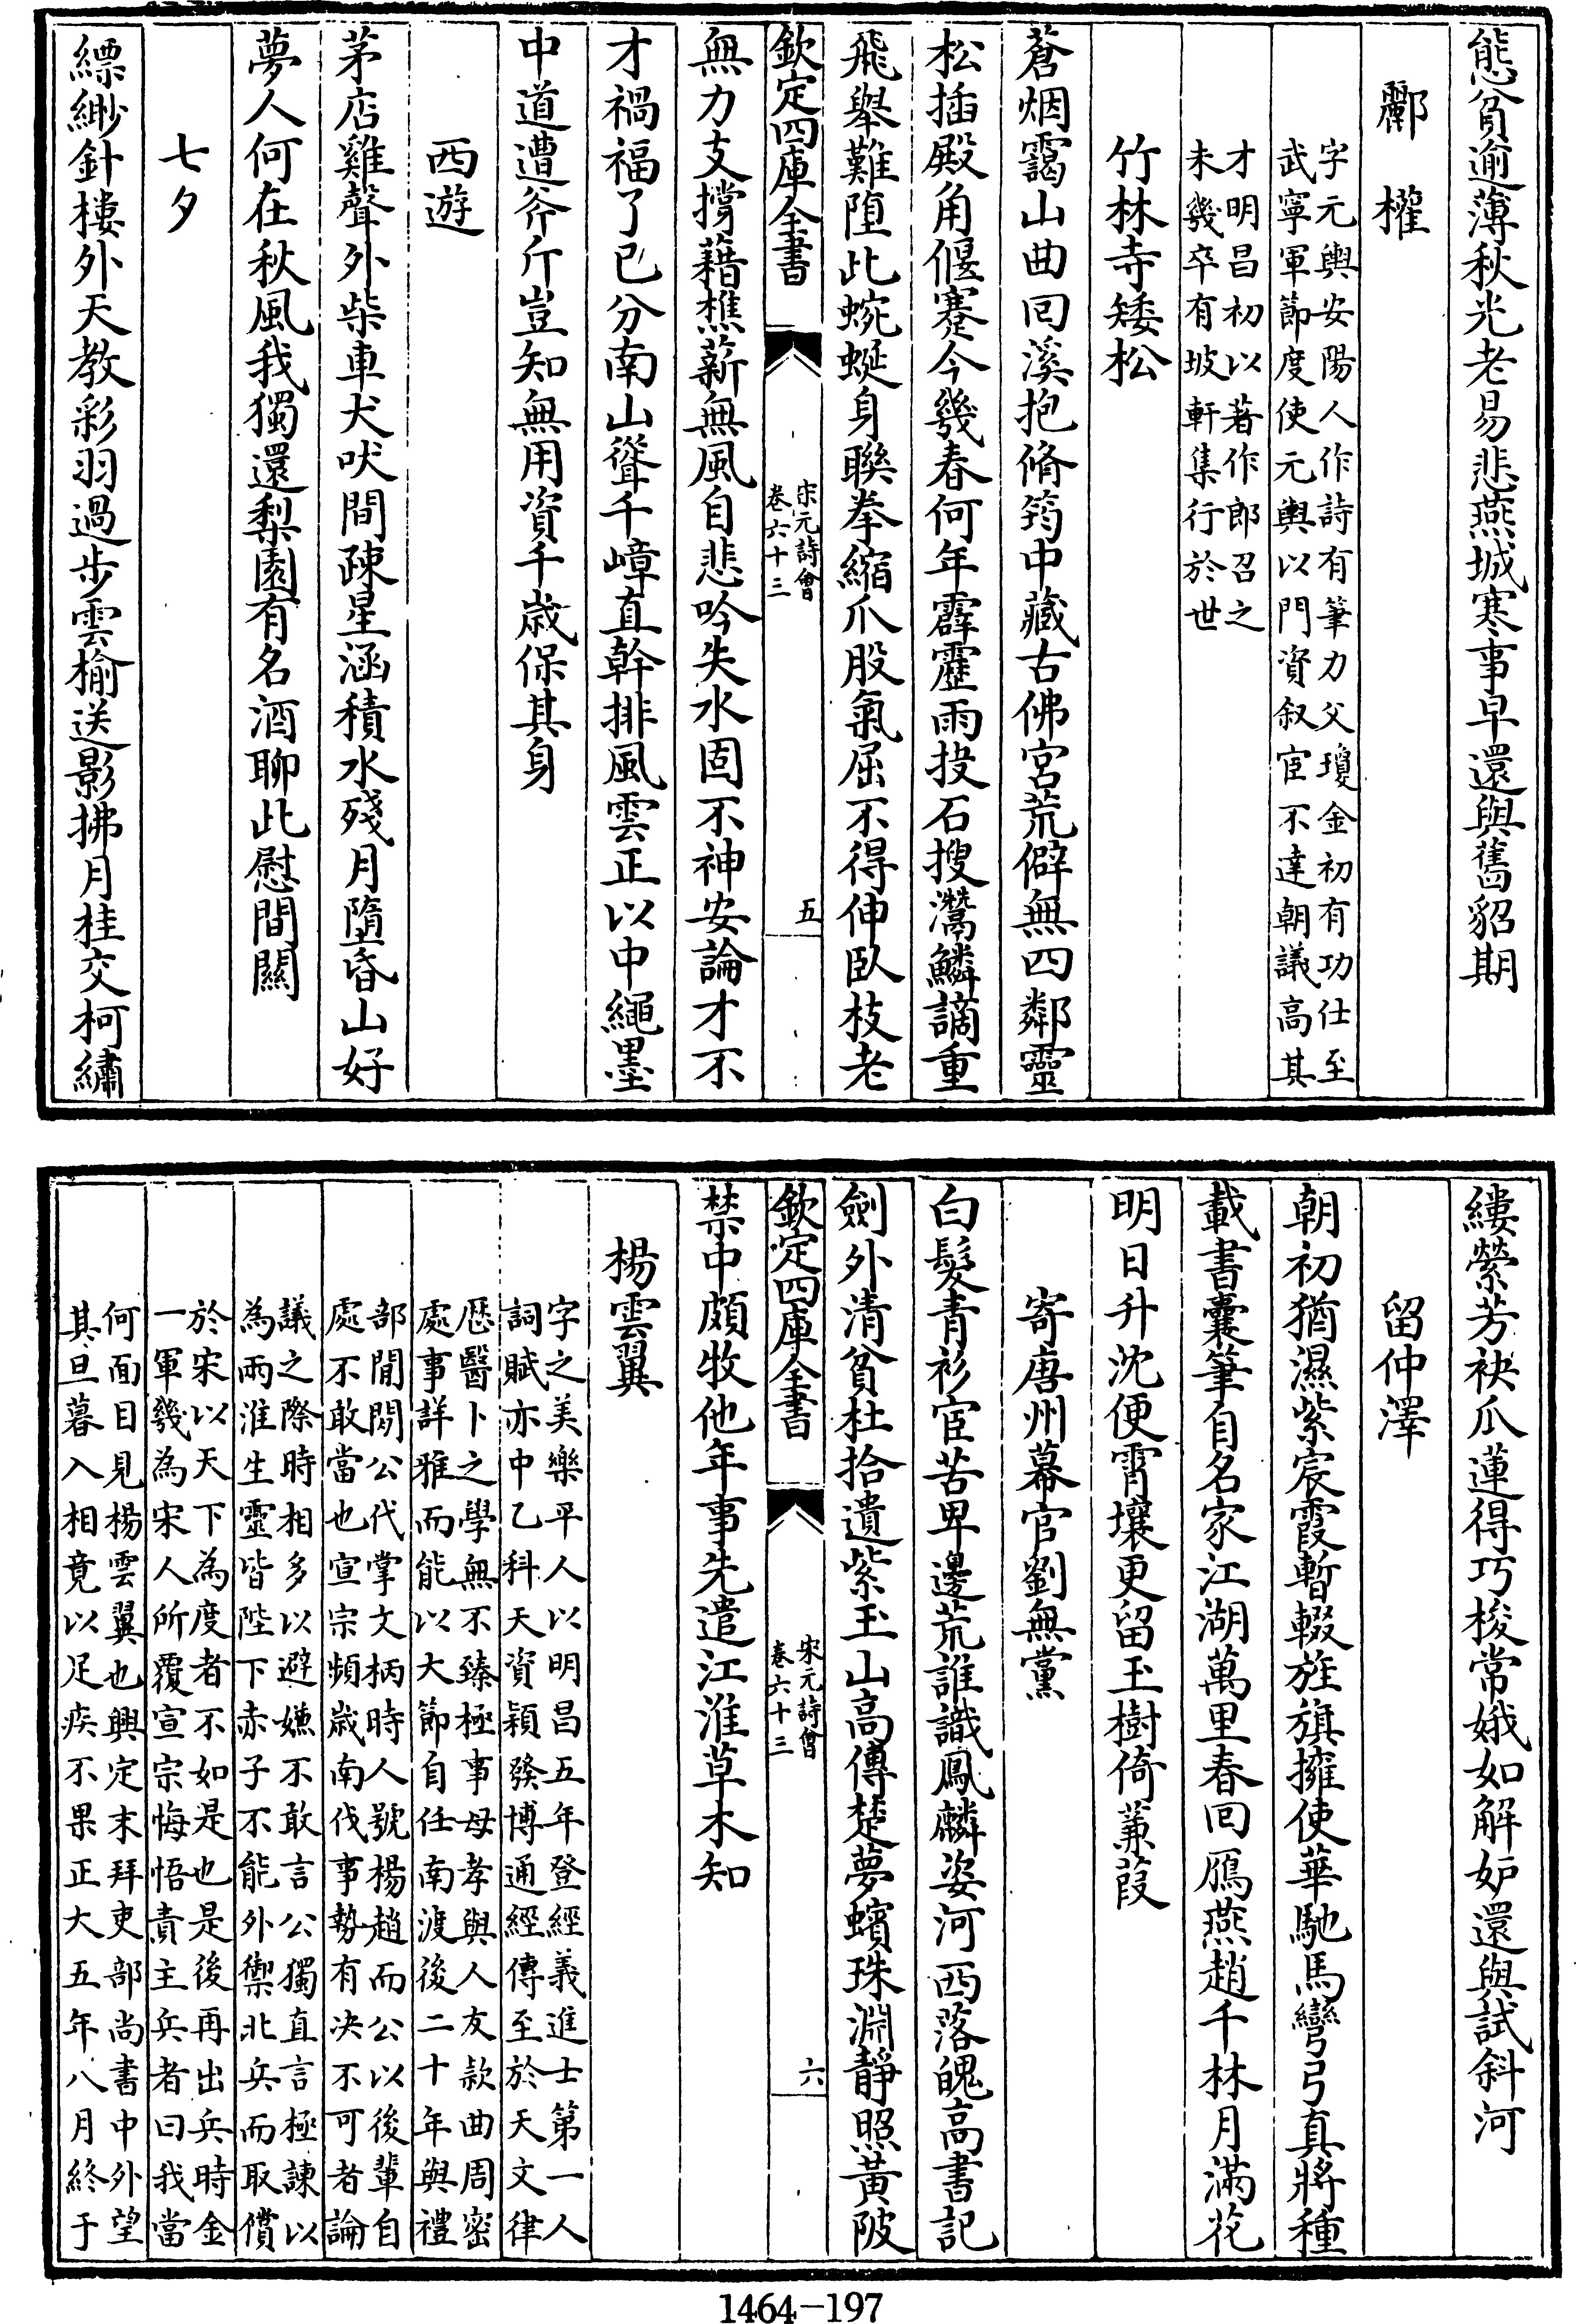 態貧逾薄秋光老易悲燕城寒事早還與舊貂期
酈權
字元輿安陽人作詩有筆力父瓊金初有功仕至
武寧軍節度使元輿以門資叙宦不達朝議高其
才明昌初以著作郎召之
未幾卒有坡軒集行於世
竹林寺矮松
蒼烟靄山曲回溪抱脩筠中藏古佛宮荒僻無四鄰靈
松插殿角偃蹇今幾春何年霹靂雨投石搜灊鱗謫重
飛舉難墮此蜿蜒身聯拳縮爪股氣屈不得伸臥枝老
欽定四庫全書
宋元詩會
卷六十三
五
無力支撐藉樵薪無風自悲吟失水固不神安論才不
才禍福了已分南山聳千嶂直幹排風雲正以中繩墨
中道遭斧斤豈知無用資千歲保其身
西遊
茅店雞聲外柴車犬吠間疎星涵積水殘月墮昏山好
夢人何在秋風我獨還梨園有名酒聊此慰間關
七夕
縹緲針樓外天教彩羽過步雲榆送影拂月桂交柯繡
縷縈芳袂爪蓮得巧梭常娥如解妒還與試斜河
留仲澤
朝初猶濕紫宸霞暫輟旌旗擁使華馳馬彎弓真將種
載書囊筆自名家江湖萬里春回鴈燕趙千林月滿花
明日升沈便霄壤更留玉樹倚蒹葭
寄唐州幕官劉無黨
白髮青衫宦苦卑邊荒誰識鳳麟姿河西落魄高書記
劍外清貧杜拾遺紫玉山高傅楚夢蠙珠淵靜照黃陂
欽定四庫全書
宋元詩會
卷六十三
六
禁中頗牧他年事先遣江淮草木知
楊雲翼
字之美樂平人以明昌五年登經義進士第一人
詞賦亦中乙科天資穎發博通經傳至於天文律
歷醫卜之學無不臻極事母孝與人友款曲周密
處事詳雅而能以大節自任南渡後二十年與禮
部閒閑公代掌文柄時人號楊趙而公以後輩自
處不敢當也宣宗頻歲南伐事勢有决不可者論
議之際時相多以避嫌不敢言公獨直言極諫以
為兩淮生靈皆陛下赤子不能外禦北兵而取償
於宋以天下為度者不如是也是後再出兵時金
一軍幾為宋人所覆宣宗悔悟責主兵者曰我當
何面目見楊雲翼也興定末拜吏部尚書中外望
其旦暮入相竟以足疾不果正大五年八月終于
1464-197